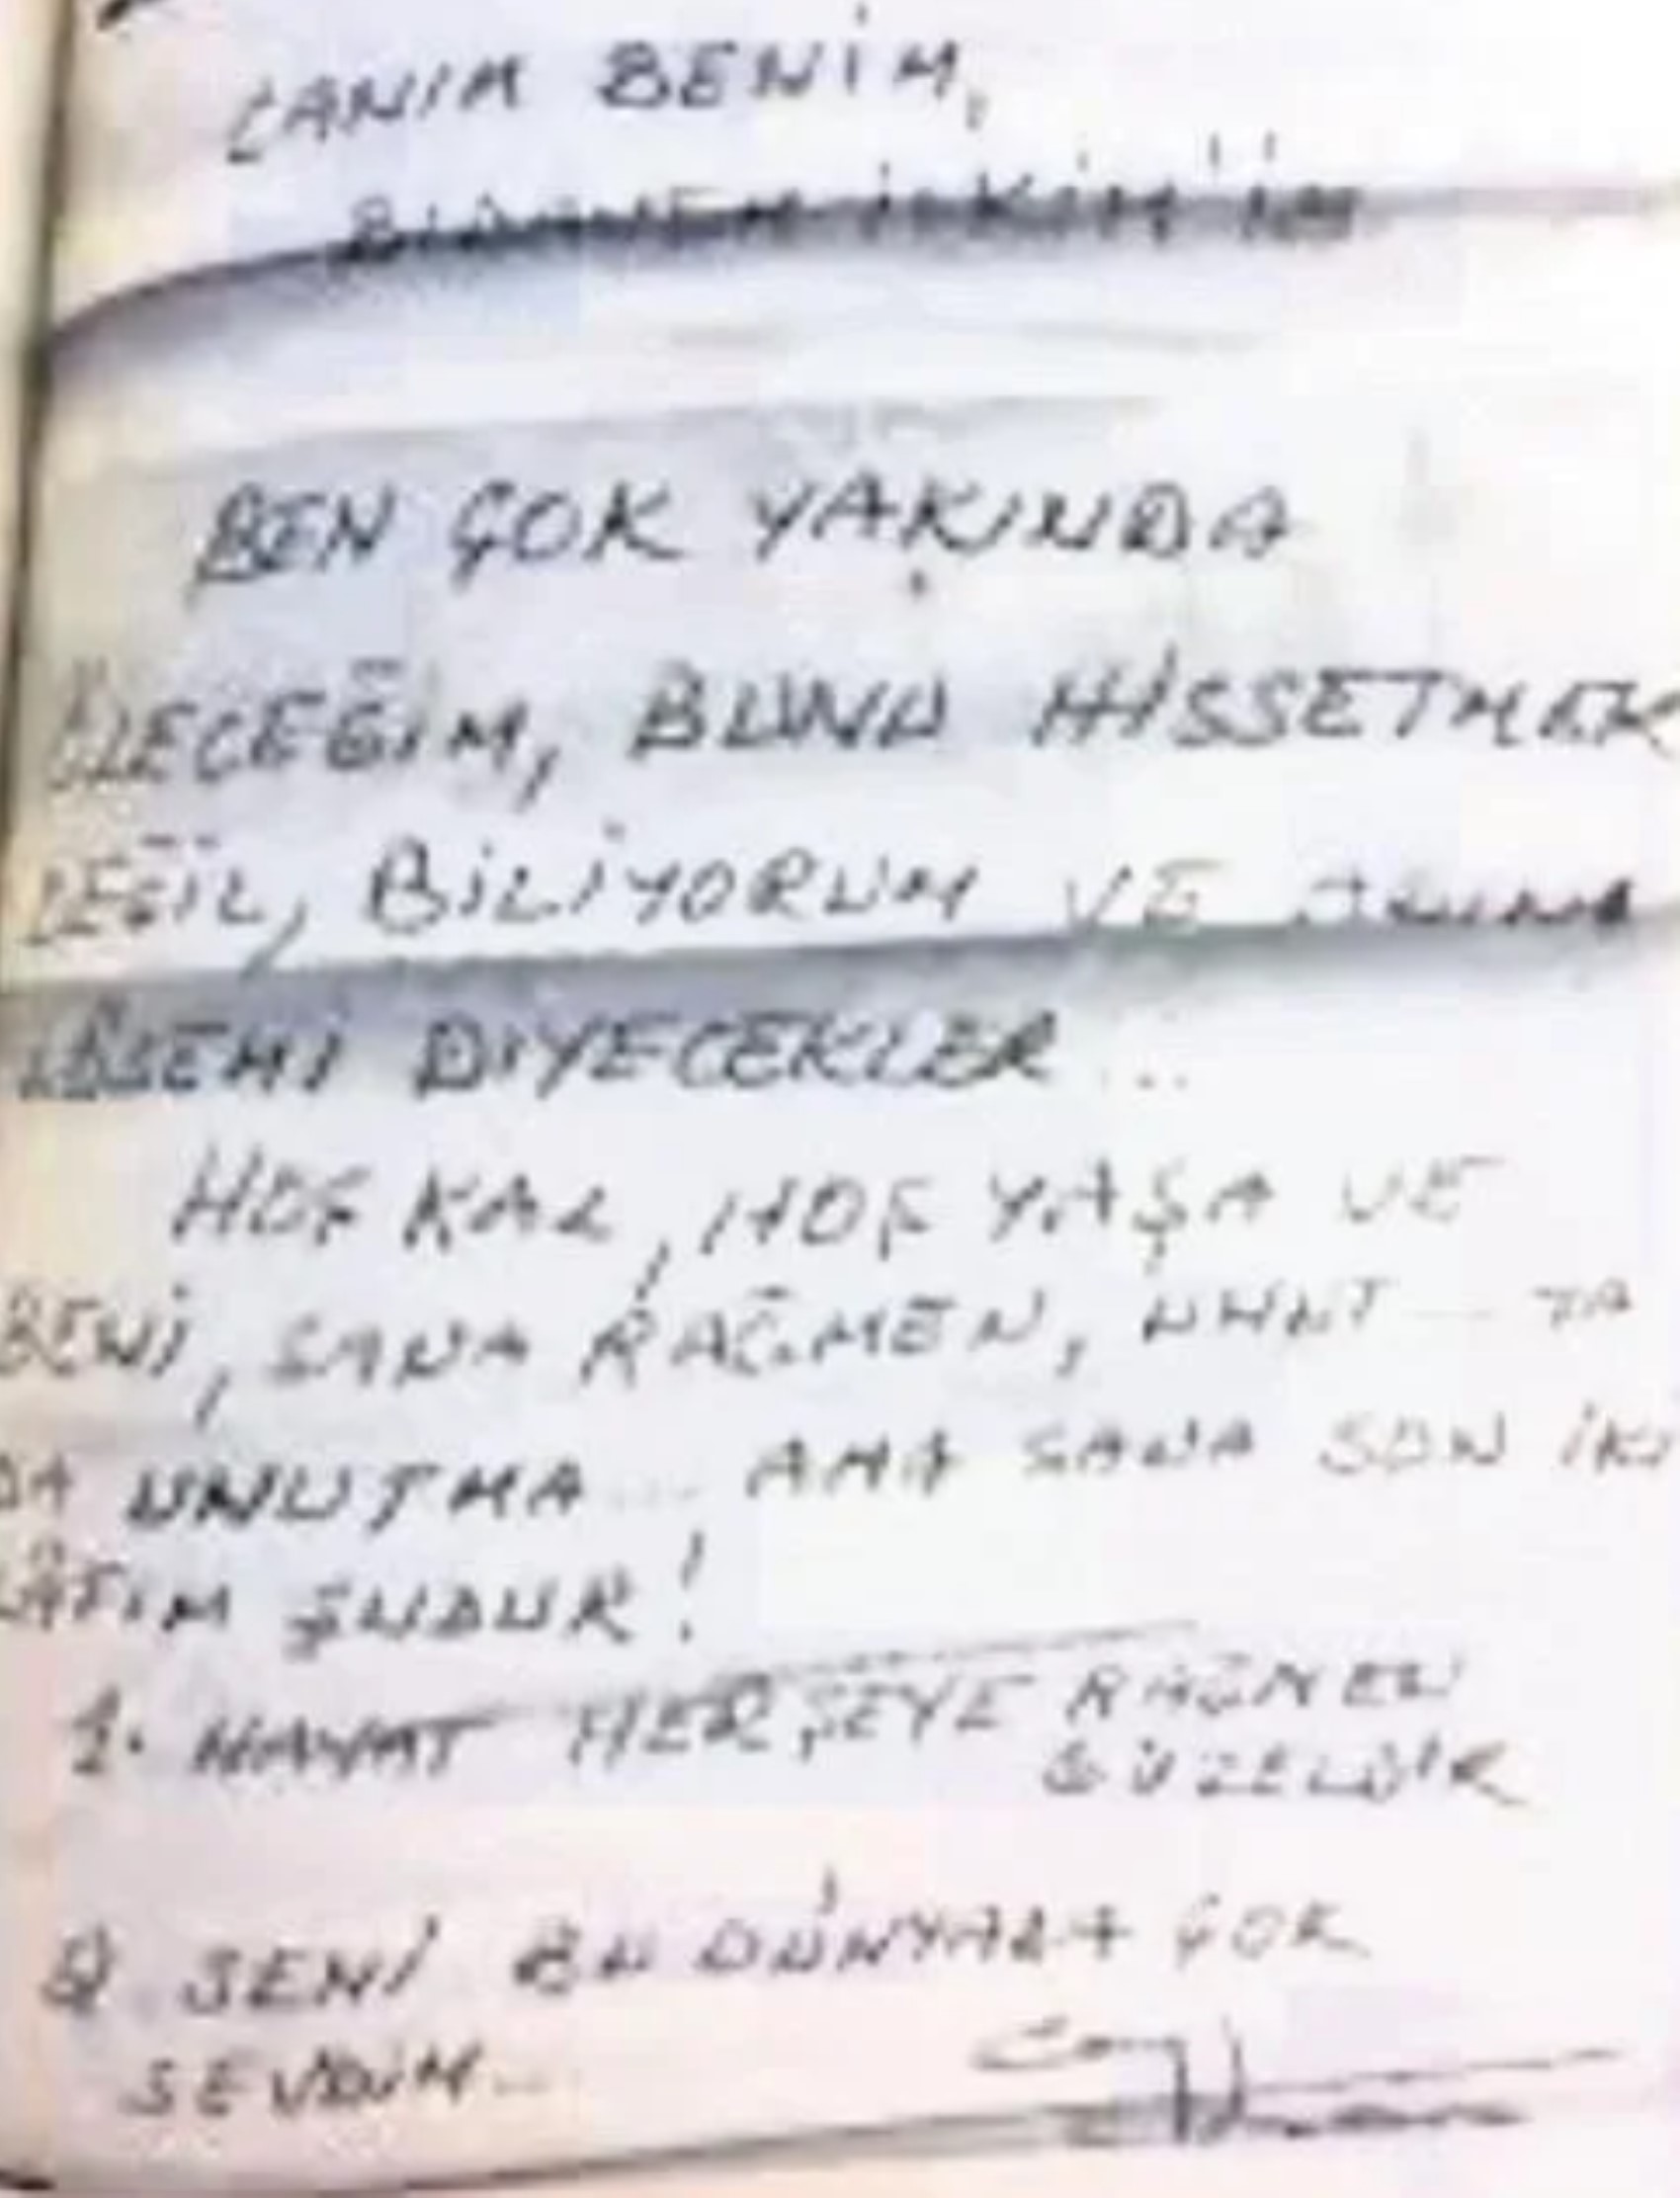 CANIM BENİM,
BEN ÇOK YAKINDA
ÖLECEĞİM, BUNU HİSSETMEK
DEĞİL, BİLİYORUM VE
DİYECEKLER ...
HOŞ KAL, HOŞ YAŞA VE
BENİ, SANA RAĞMEN, UNUT... YA
DA UNUTMA... AMA SANA SON İKİ
LÂFIM ŞUDUR!
1. HAYAT HERŞEYE RAĞMEN
GÜZELDİR
2 SENİ BU DÜNYADA ÇOK
SEVDİM...